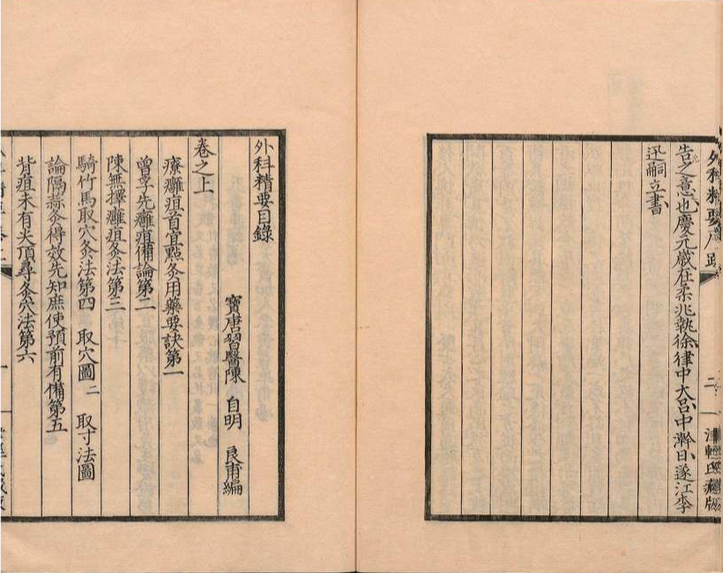 告之意也慶元歲在柔兆執徐律中大呂中澣日遂江李
迅嗣立書
津輕氏藏版
外科精要目錄
寶唐習醫陳 自明 良甫編
卷之上
療癰疽首宜點灸用藥要訣第一
曾孚先癰疽備論第二
陳無擇癰疽灸法第三
騎竹馬取穴灸法第四 取穴圖二 取寸法圖
論隔蒜灸得效先知庶使預前有備第五
背疽未有大頂尋灸穴法第六